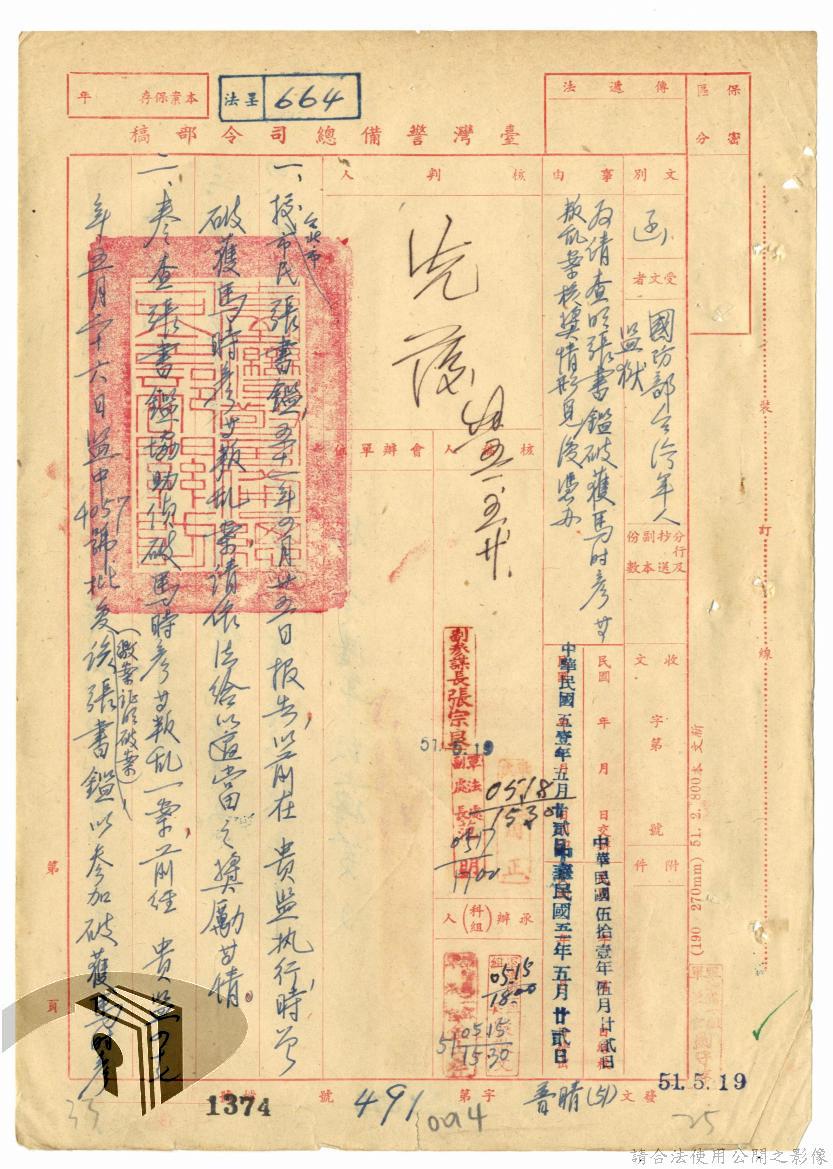 保密區分
傳遞法
664
法呈
本案保存 年
臺灣警備總司令部稿
文別 函
受文者 國防部台灣軍人監獄
事由 為請查明張書鑑破獲馬時彥等叛亂案核獎情形見復憑辦
核判人
先發
會辦單位
副參謀長張宗良
51.5.19
0518
1530
0517
1700
承辦(科組)人
0515
1800
0515
1530
分行及抄送副本份數
收文 字第 號
民國 年 月 日
附件
中華民國五壹年五月廿貳日
中華民國伍拾壹年伍月廿貳日
中華民國五一年五月廿貳日
51.5.19
發文 普晴(51)字第 491 號
1374
094
33
25
一、據台北市市民張書鑑五十一年四月廿五日報告,以前在 貴監執行時,曾
破獲馬時彥等叛亂案,請依法給以適當之獎勵等情
二、卷查張書鑑協助偵破馬時彥等叛亂一案,前經 貴監四十七
年五月二十六日監中4057號批覆該張書鑑以參加破獲馬時彥
裝訂線
第 頁
(190 270mm) 51.2.800本文新
請合法使用公開之影像